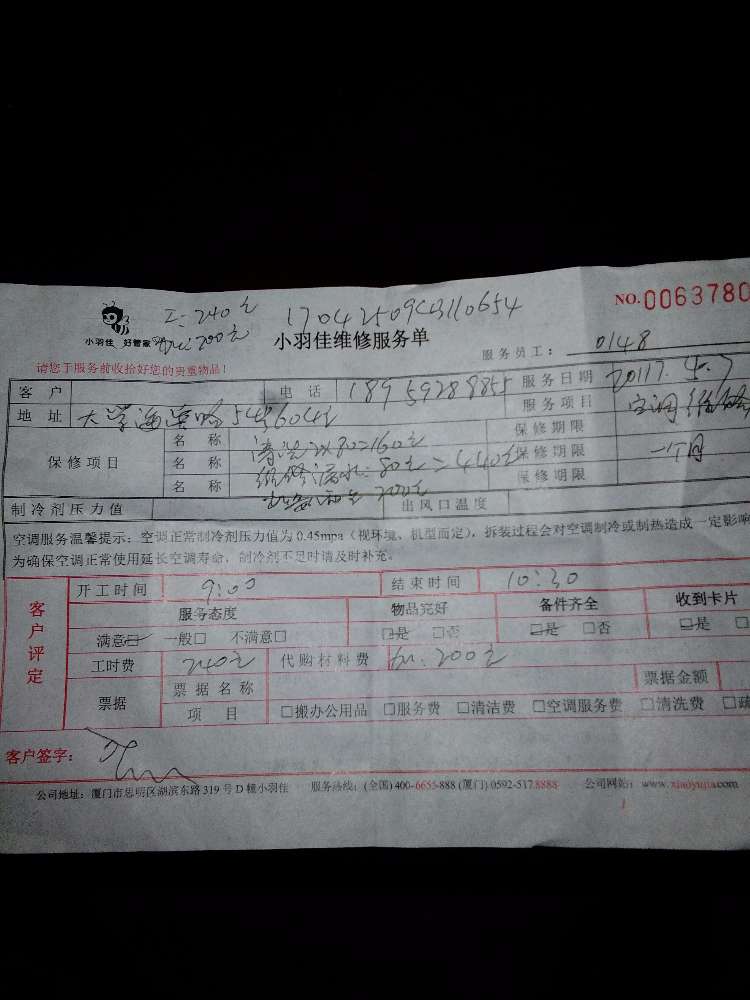 工: 240元
1704250943110654
NO.0063780
小羽佳 好管家
200元
小羽佳维修服务单
服务员工: 0148
请您于服务前收拾好您的贵重物品!
客 户 电 话 18959288855 服务日期 2017.5.7
地 址 大学海 54号604室 服务项目 空调维修
保修项目 名 称 清洗2X80=160元 保修期限
名 称 维修漏水:80元=440元 保修期限 一个月
名 称 200元 保修期限
制冷剂压力值 出风口温度
空调服务温馨提示: 空调正常制冷剂压力值为 0.45mpa (视环境、机型而定), 拆装过程会对空调制冷或制热造成一定影响
为确保空调正常使用延长空调寿命, 制冷剂不足时请及时补充。
客户评定
开工时间 9:00 结束时间 10:30
服务态度 物品完好 备件齐全 收到卡片
满意□ 一般□ 不满意□ □是 □否 □是 □否 □是 □
工时费 240元 代购材料费 200元
票据 票据名称 票据金额
项 目 □搬办公用品 □服务费 □清洁费 □空调服务费 □清洗费 □疏
客户签字:
公司地址: 厦门市思明区湖滨东路 319 号 D 幢小羽佳 服务热线: (全国) 400-6655-888 (厦门) 0592-517.8888 公司网站: www.xiaoyujia.com